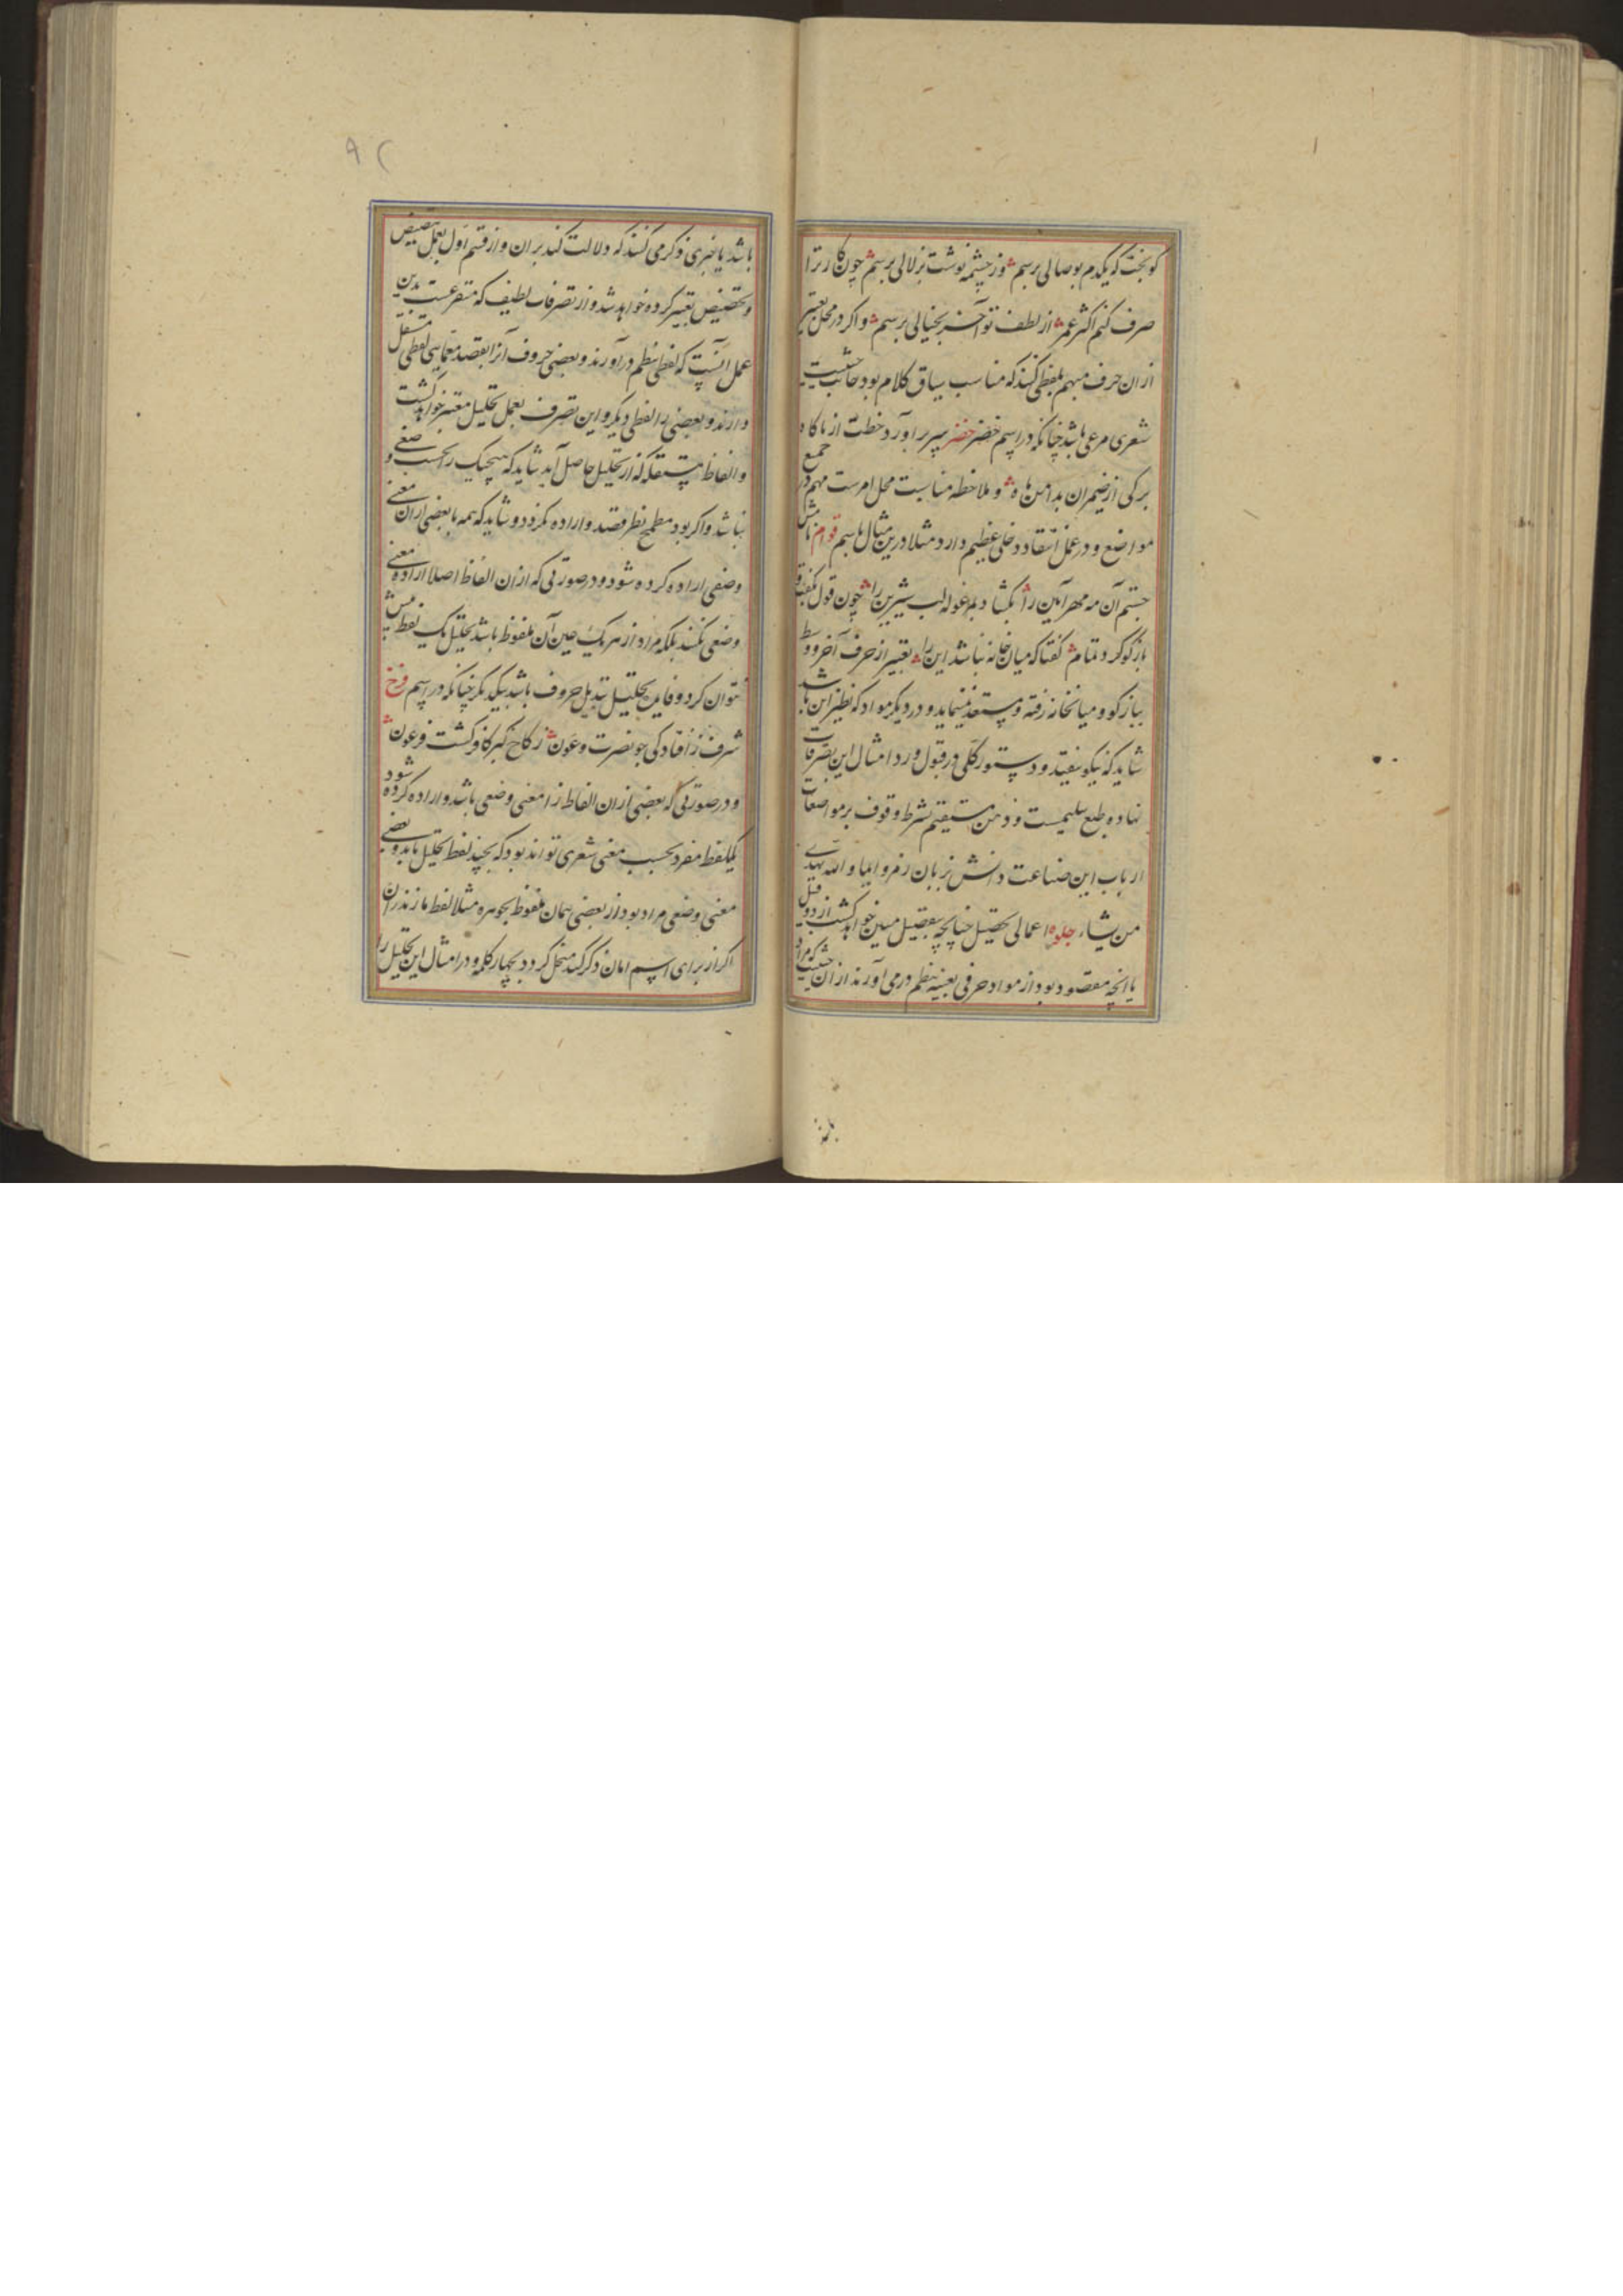 کو بخت که یکدم بوصالی برسم وز چشمه نوشت بزلالی برسم چون کار ترا
صرف کنم اکثر عمر از لطف تو آخر بخیالی برسم و اکر در محل تعبیر
از ان حرف مبهم بلفظی کنند که مناسب سیاق کلام بود جانب حیثیت
شعری مرعی باشد چنانکه در اسم خضر خضر سپر براورد خطت از ناکاه
برکی از ضیمران بدامن ماه و ملاحظه مناسبت محل امریست مهم در جمیع
مواضع و در عمل انتقاد دخلی عظیم دارد مثلا درین مثال باسم قوام
چشم آن مه مهر آیین را بکشاد بمرغوله لب شیرین را چون قول
بازکو کرد تمام کفتا که میان خانه نباشد این را تعبیر از حرف آخر و وسط
ببازکو و میانخانه رفته و مستعد مینماید و در دیکر مواد که نظیر این باشد
شاید که نیکو نیفتد و دستور کلی در قبول و رد امثال این تصرفات
نهاده طبع سلیمست و ذهن مستقیم بشرط وقوف بر مواضعات
ارباب این صناعت و دانش زبان رمز و ایما و الله یهدی
من یشاء جلوه اعمالی تحصیل چنانچه بتفصیل مبین خواهد کشت از دو قبیل
یا انچه مقصود بود از مواد حرفی بعینه بنظم درمی آورند از ان حیثیت که مراد
باشد یا چیزی ذکر می کنند که دلالت کند بر ان و از قسم اول بعمل تنصیص
و تخصیص تعبیر کرده خواهد شد و از تصرفات لطیف که متفرعست بدین
عمل آنست که لفظی بنظم درآورند و بعضی حروف آنرا بقصد معمایی لفظی مستقل
دارند و بعضی را لفظی دیکر و این تصرف بعمل تحلیل معتبر خواهد کشت
و الفاظ مستقله که از تحلیل حاصل آید شاید که هیچیک را بحسب وضع
نباشد و اکر بود مطمح نظر قصد و اراده نکردد و شاید که همه با بعضی از ان معنی
وضعی اراده کرده شود و در صورتی که از ان الفاظ اصلا اراده معنی
وضعی نکنند بلکه مراد از هر یک عین آن ملفوظ باشد تحلیل یک لفظ بیش
نتوان کرد و فایده تحلیل تبدیل حروف باشد بیکدیکر چنانکه در اسم فرخ
شرف ز افتادکی جو نصرت و عون ز کاخ کبر کافر کشت فرعون
و در صورتی که بعضی از ان الفاظ را معنی وضعی باشد و اراده کرده شود
یکلفظ مفرد بحسب معنی شعری تواند بود که بچند لفظ تحلیل یابد و بعضی
معنی وضعی مراد بود و از بعضی همان ملفوظ بجوهره مثلا لفظ مازندران
اکر از برای اسم امان ذکر کنند منحل کردد بچهار کلمه و در امثال این تحلیل را